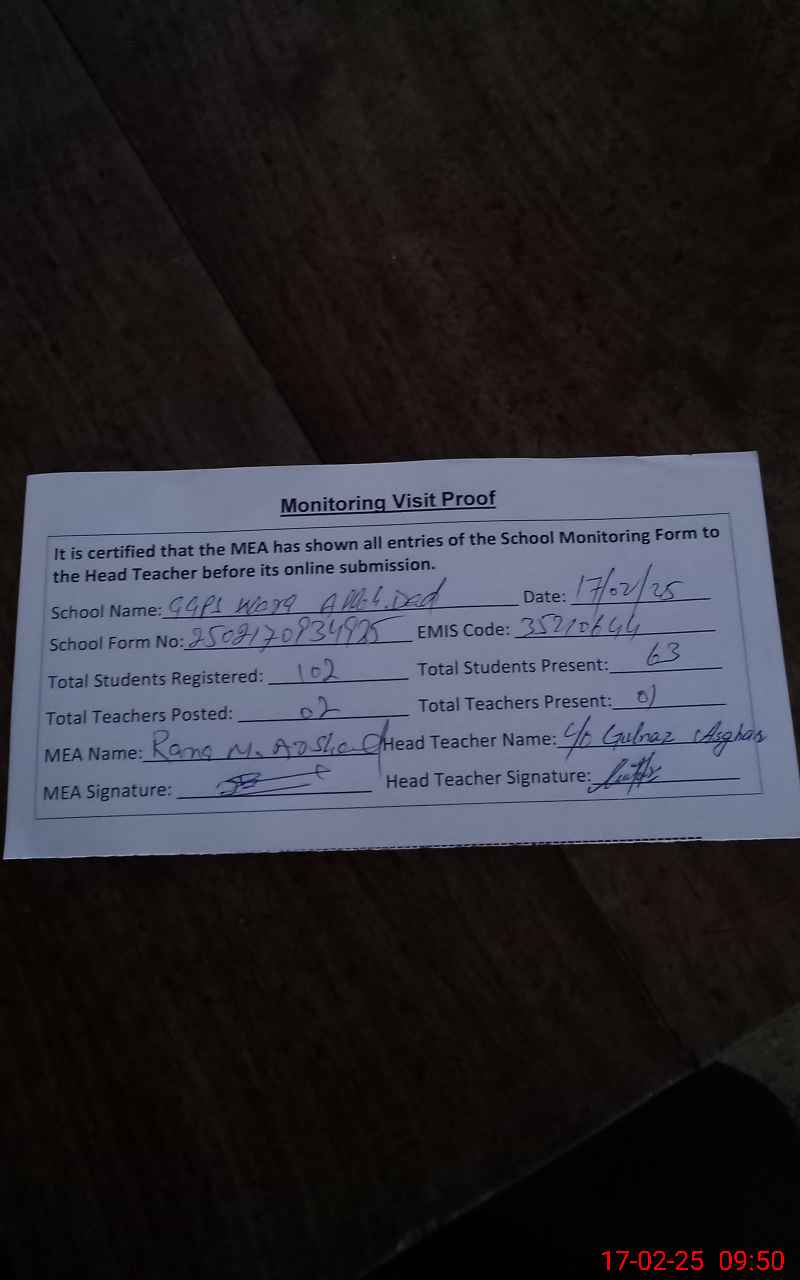 Monitoring Visit Proof
It is certified that the MEA has shown all entries of the School Monitoring Form to
the Head Teacher before its online submission.
School Name: GGPS Wara Dad Date: 17/02/25
School Form No: 2502170934925 EMIS Code: 35210644
Total Students Registered: 102 Total Students Present: 63
Total Teachers Posted: 02 Total Teachers Present: 01
MEA Name: Rana M. Arshad Head Teacher Name: C/o Gulnaz Asghar
MEA Signature: Head Teacher Signature:
17-02-25 09:50